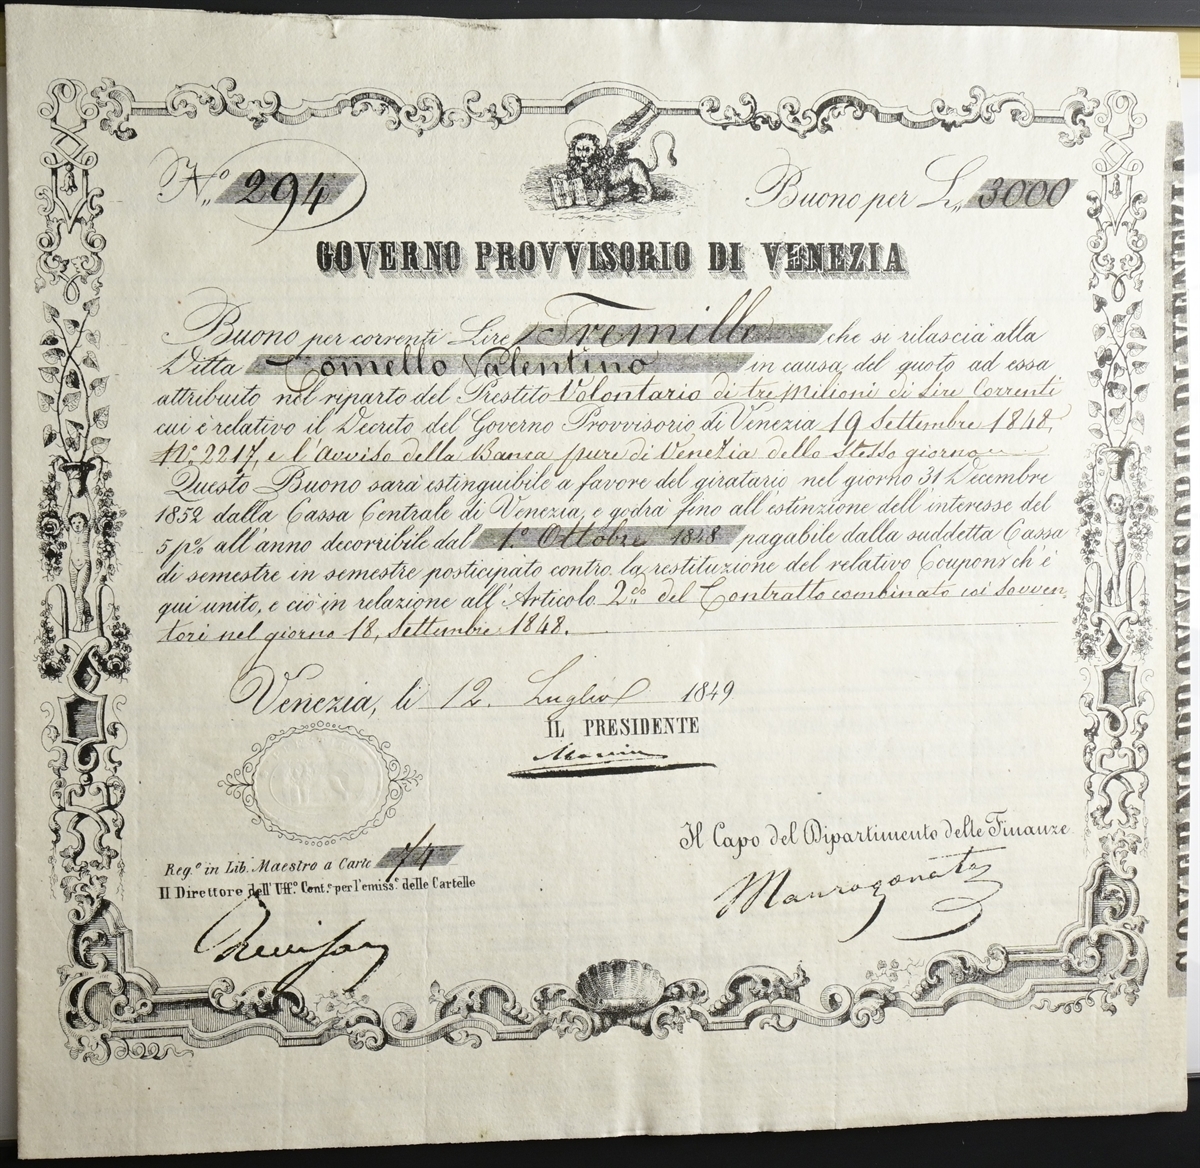 N.º 294
Buono per L. 3000
GOVERNO PROVVISORIO DI VENEZIA
Buono per correnti Lire Tremille che si rilascia alla
Ditta Comello Valentino in causa del quoto ad essa
attribuito nel riparto del Prestito Volontario di tre Milioni di Lire Correnti
cui è relativo il Decreto del Governo Provvisorio di Venezia 19 Settembre 1848,
N.º 2217, e l'Avviso della Banca pure di Venezia dello stesso giorno
Questo Buono sarà estinguibile a favore del giratario nel giorno 31 Decembre
1852 dalla Cassa Centrale di Venezia, e godrà fino all'estinzione dell'interesse del
5 p% all'anno decorribile dal 1.º Ottobre 1848 pagabile dalla suddetta Cassa
di semestre in semestre posticipato contro la restituzione del relativo Coupons ch'è
qui unito, e ciò in relazione all'Articolo 2.do del Contratto combinato coi Sovven-
tori nel giorno 18, Settembre 1848.
Venezia, li 12. Luglio 1849
IL PRESIDENTE
Manin
Il Capo del Dipartimento delle Finanze
Maurogonato
Reg.º in Lib. Maestro a Carte 74
Il Direttore dell'Uff.º Cont.e per l'emiss.e delle Cartelle